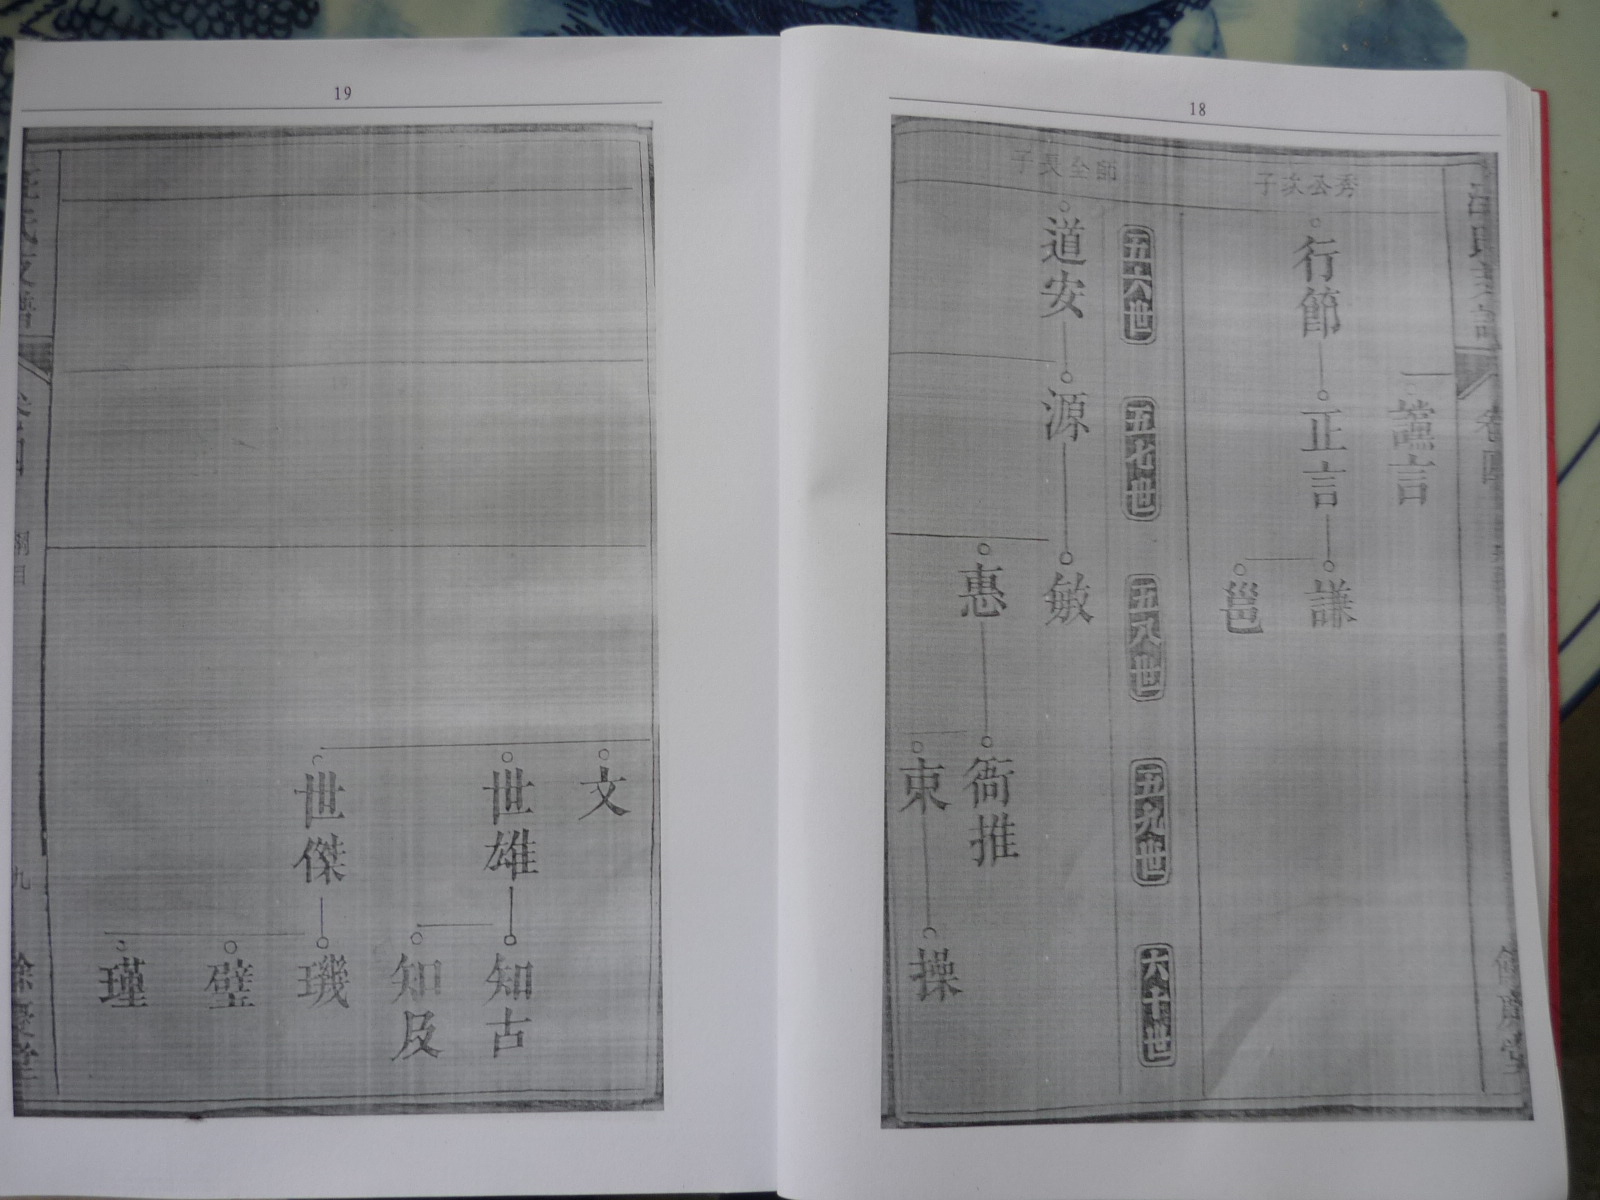 18
秀公次子
行節
正言
謙
邕
讜言
五六世
五七世
五八世
五九世
六十世
師全長子
道安
源
敏
惠
衙推
東
操
19
文
世雄
知古
知及
世傑
璣
璧
瑾
綱目
九
餘慶堂